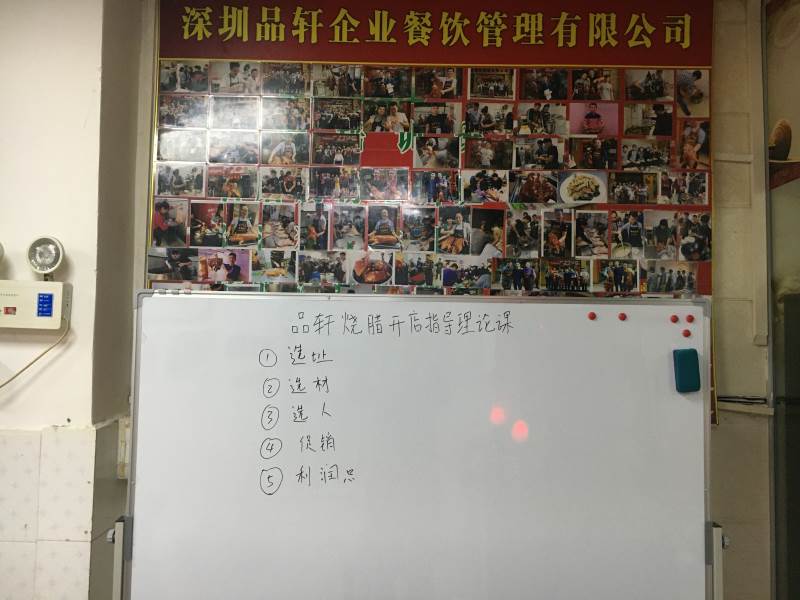 深圳品轩企业餐饮管理有限公司
品轩烧腊开店指导理论课
① 选址
② 选材
③ 选人
④ 促销
⑤ 利润点